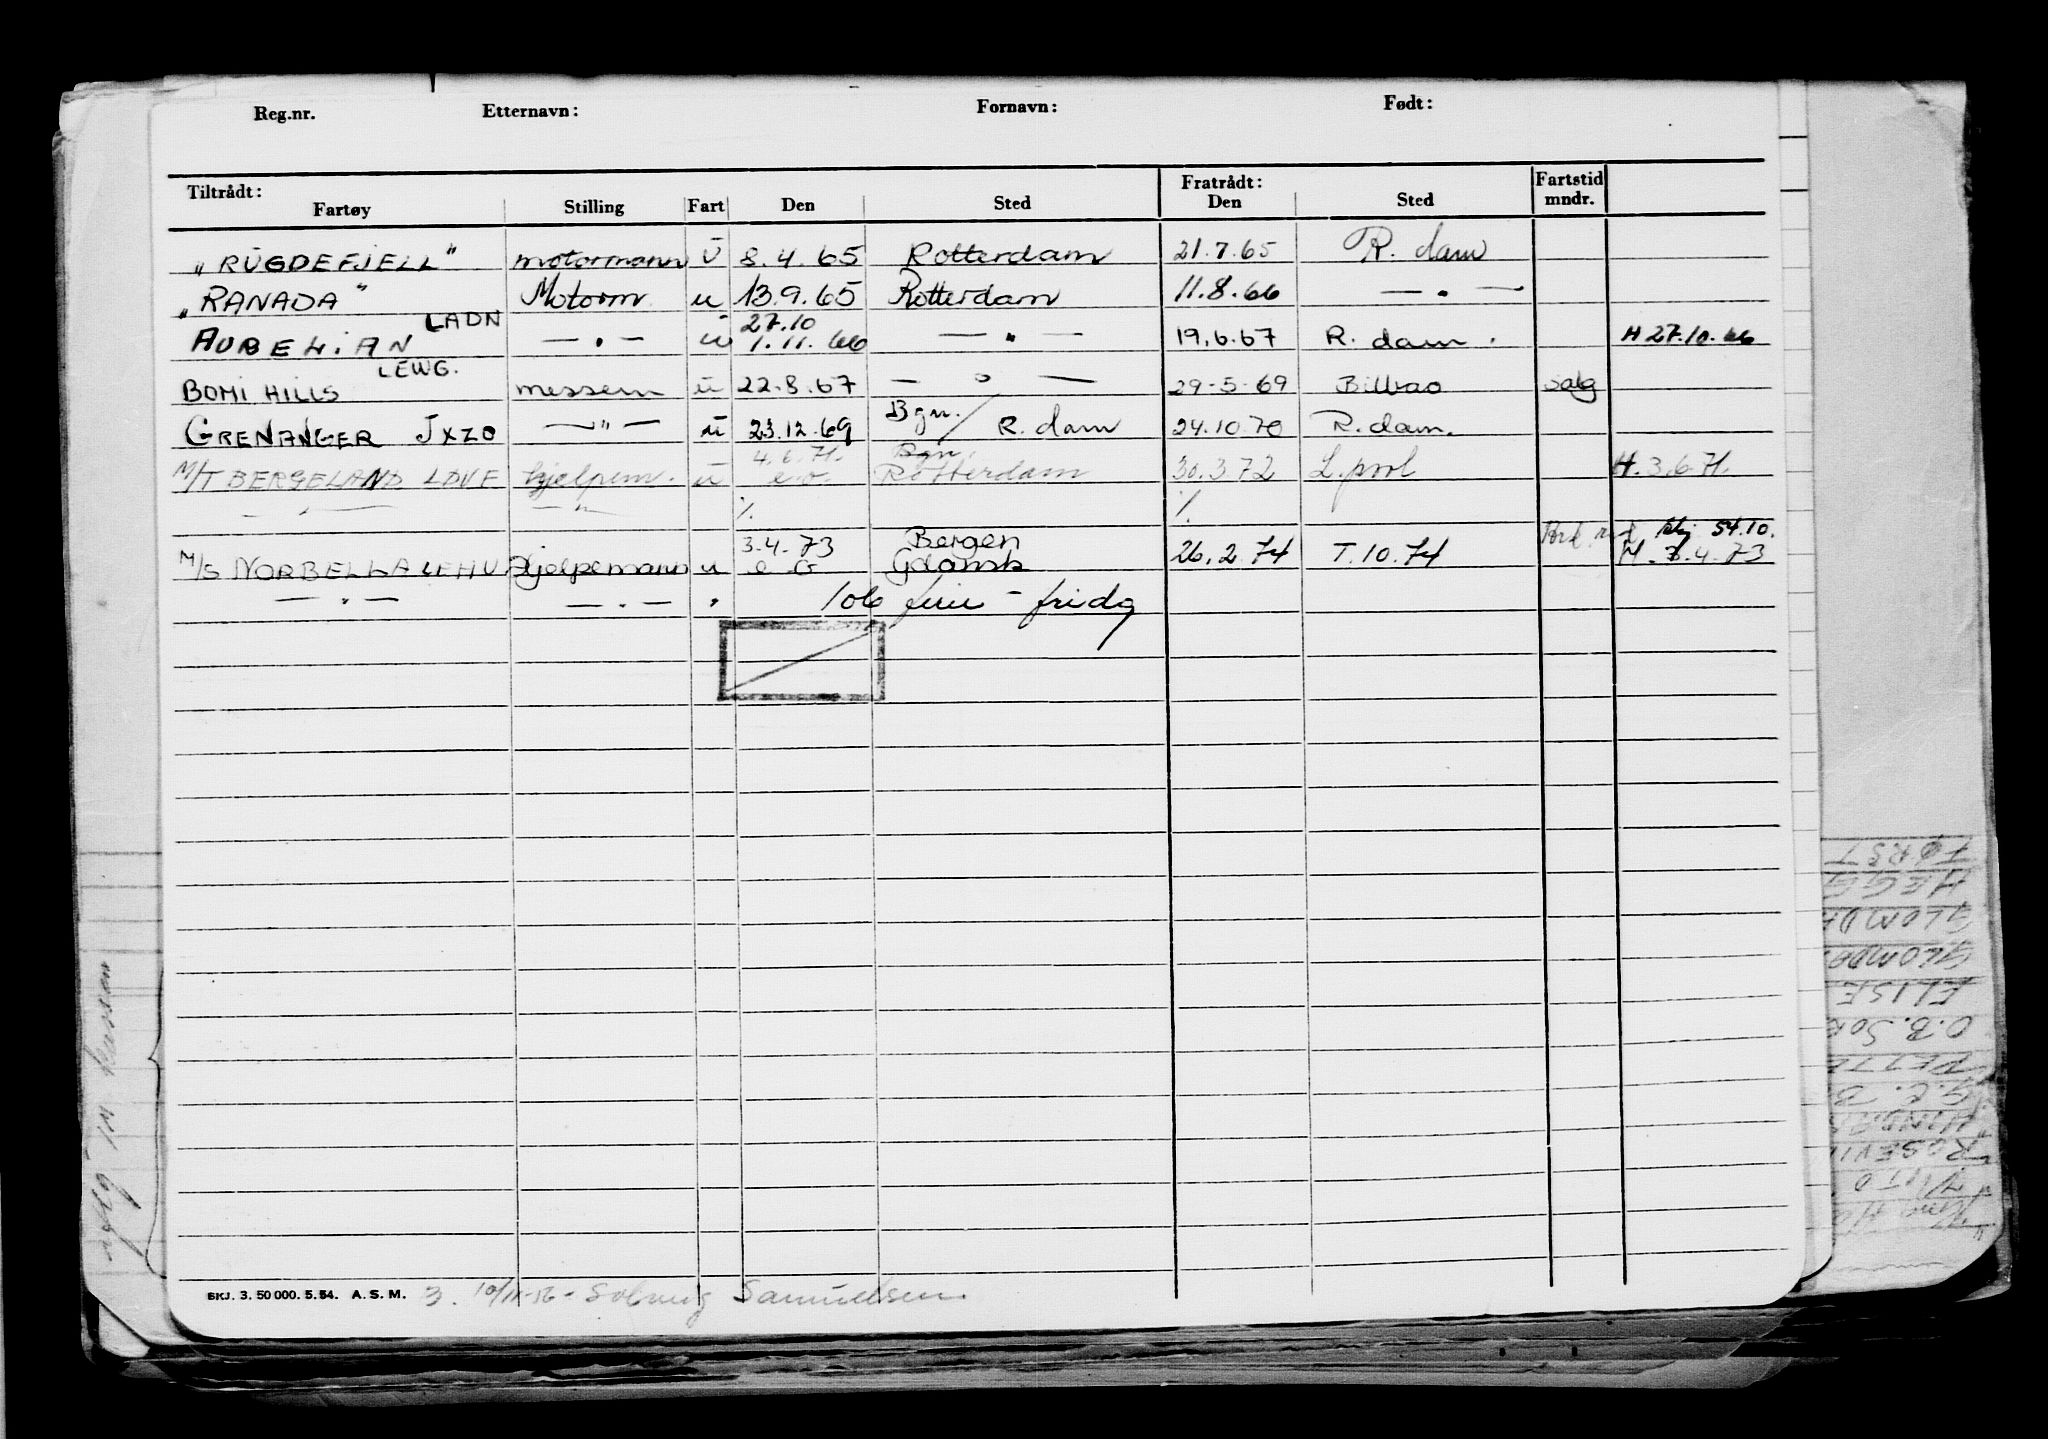 Reg.nr. Etternavn: Fornavn: Født:
Tiltrådt: Fratrådt: Fartstid
Fartøy Stilling Fart Den Sted Den Sted mndr.
"RUGDEFJELL" motormann u 8.4.65 Rotterdam 21.7.65 R.dam
"RANADA" Motorm u 13.9.65 Rotterdam 11.8.66 — " —
LADN 27.10
AURELIAN — " — u 1.11.66 — " — 19.6.67 R.dam. H 27.10.66
LEWG.
BOMI HILLS messem u 22.8.67 — " — 29-5-69 Bilbao salg
GRENANGER JXZO — " — u 23.12.69 Bgn./R.dam 24.10.70 R.dam.
4.6.71. Bgn.
M/T BERGELAND LDVE hjelpem. u e.o. Rotterdam 30.3.72 L.pool H.3.6.71.
— " — — " — %. %.
3.4.73 Bergen 54.10.
M/S NORBELLA LEHU Hjelpemann u e o Gdansk 26.2.74 T.10.74 H.3.4.73
— " — — " — " 106 ferie - fridg
BKJ. 3. 50 000. 5. 54. A. S. M. 3. 10/11-56 - Solveig Samuelsen.
FØRST
HEGG
GLOMDA
GLOMDA
ELISE
O.B. SOR
PETTE
G.C. B
ROSEVI
VITO